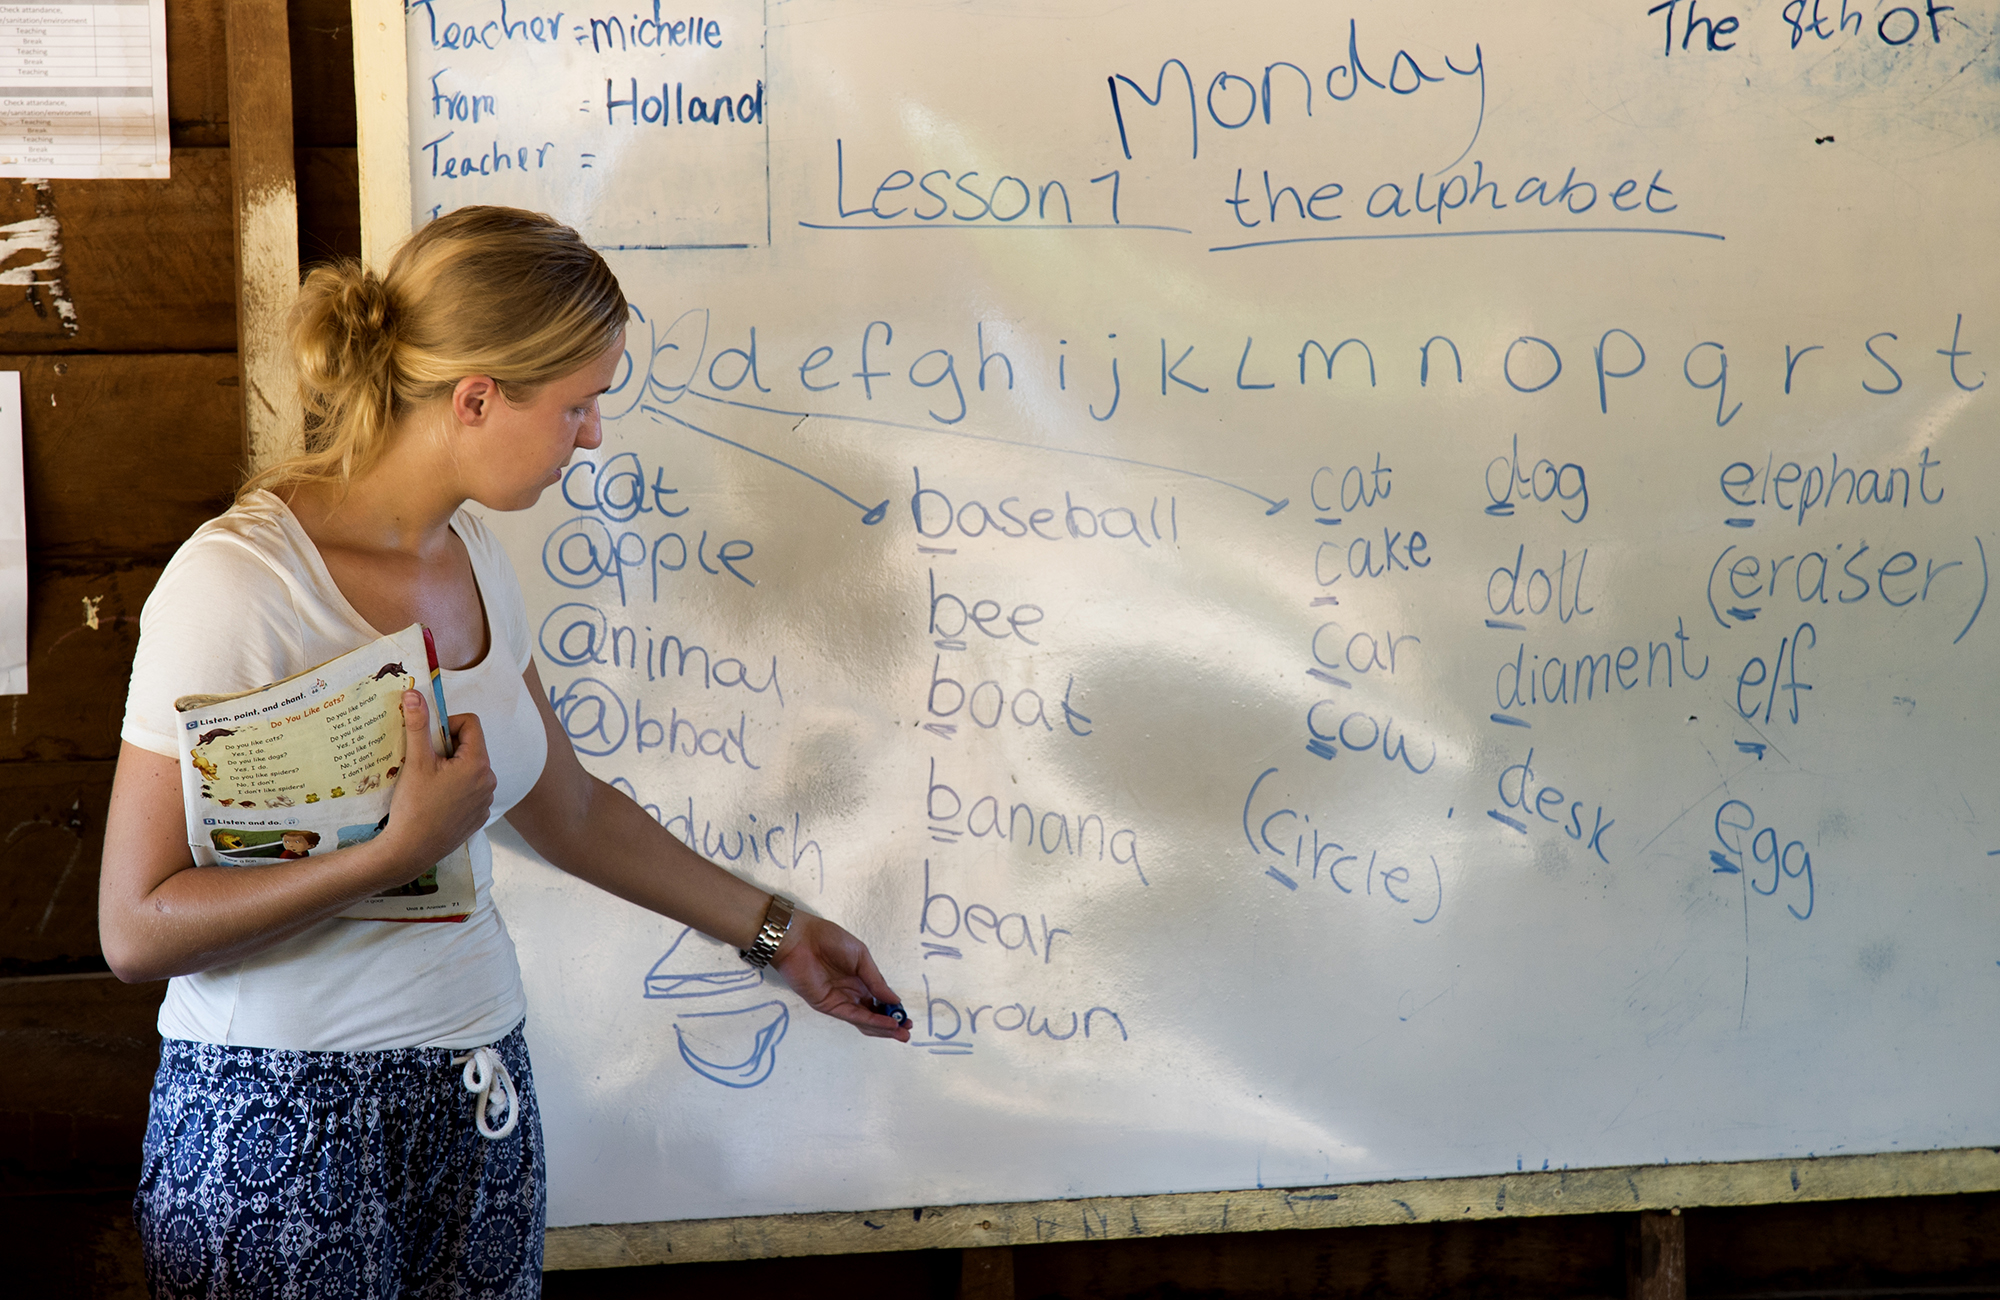 Check attendance,
e/sanitation/environment
Teaching
Break
Teaching
Break
Teaching
Check attendance,
ne/sanitation/environment
Teaching
Break
Teaching
Break
Teaching
Teacher = Michelle
From = Holland
Teacher =
The 8th of
Monday
Lesson 1 the alphabet
b c d e f g h i j k L m n o p q r s t
cat
apple
animal
rabbat
andwich
baseball
bee
boat
banana
bear
brown
cat
cake
car
cow
(circle)
dog
doll
diament
desk
elephant
(eraser)
elf
egg
C Listen, point, and chant.
Do You Like Cats?
Do you like cats?
Yes, I do.
Do you like dogs?
Yes, I do.
Do you like spiders?
No, I don't.
I don't like spiders!
Do you like birds?
Yes, I do.
Do you like rabbits?
Yes, I do.
Do you like frogs?
No, I don't.
I don't like frogs!
D Listen and do.